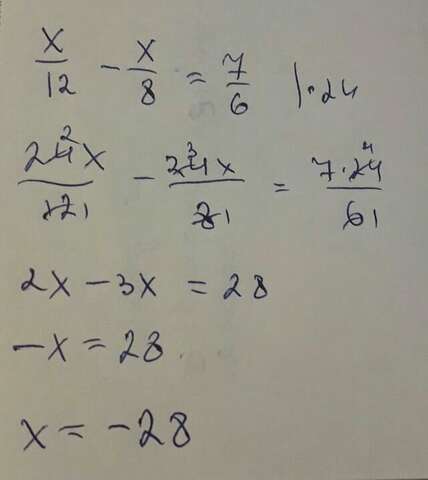 x/12 - x/8 = 7/6 |·24
24x/12 - 24x/8 = 7·24/6
2x - 3x = 28
-x = 28
x = -28